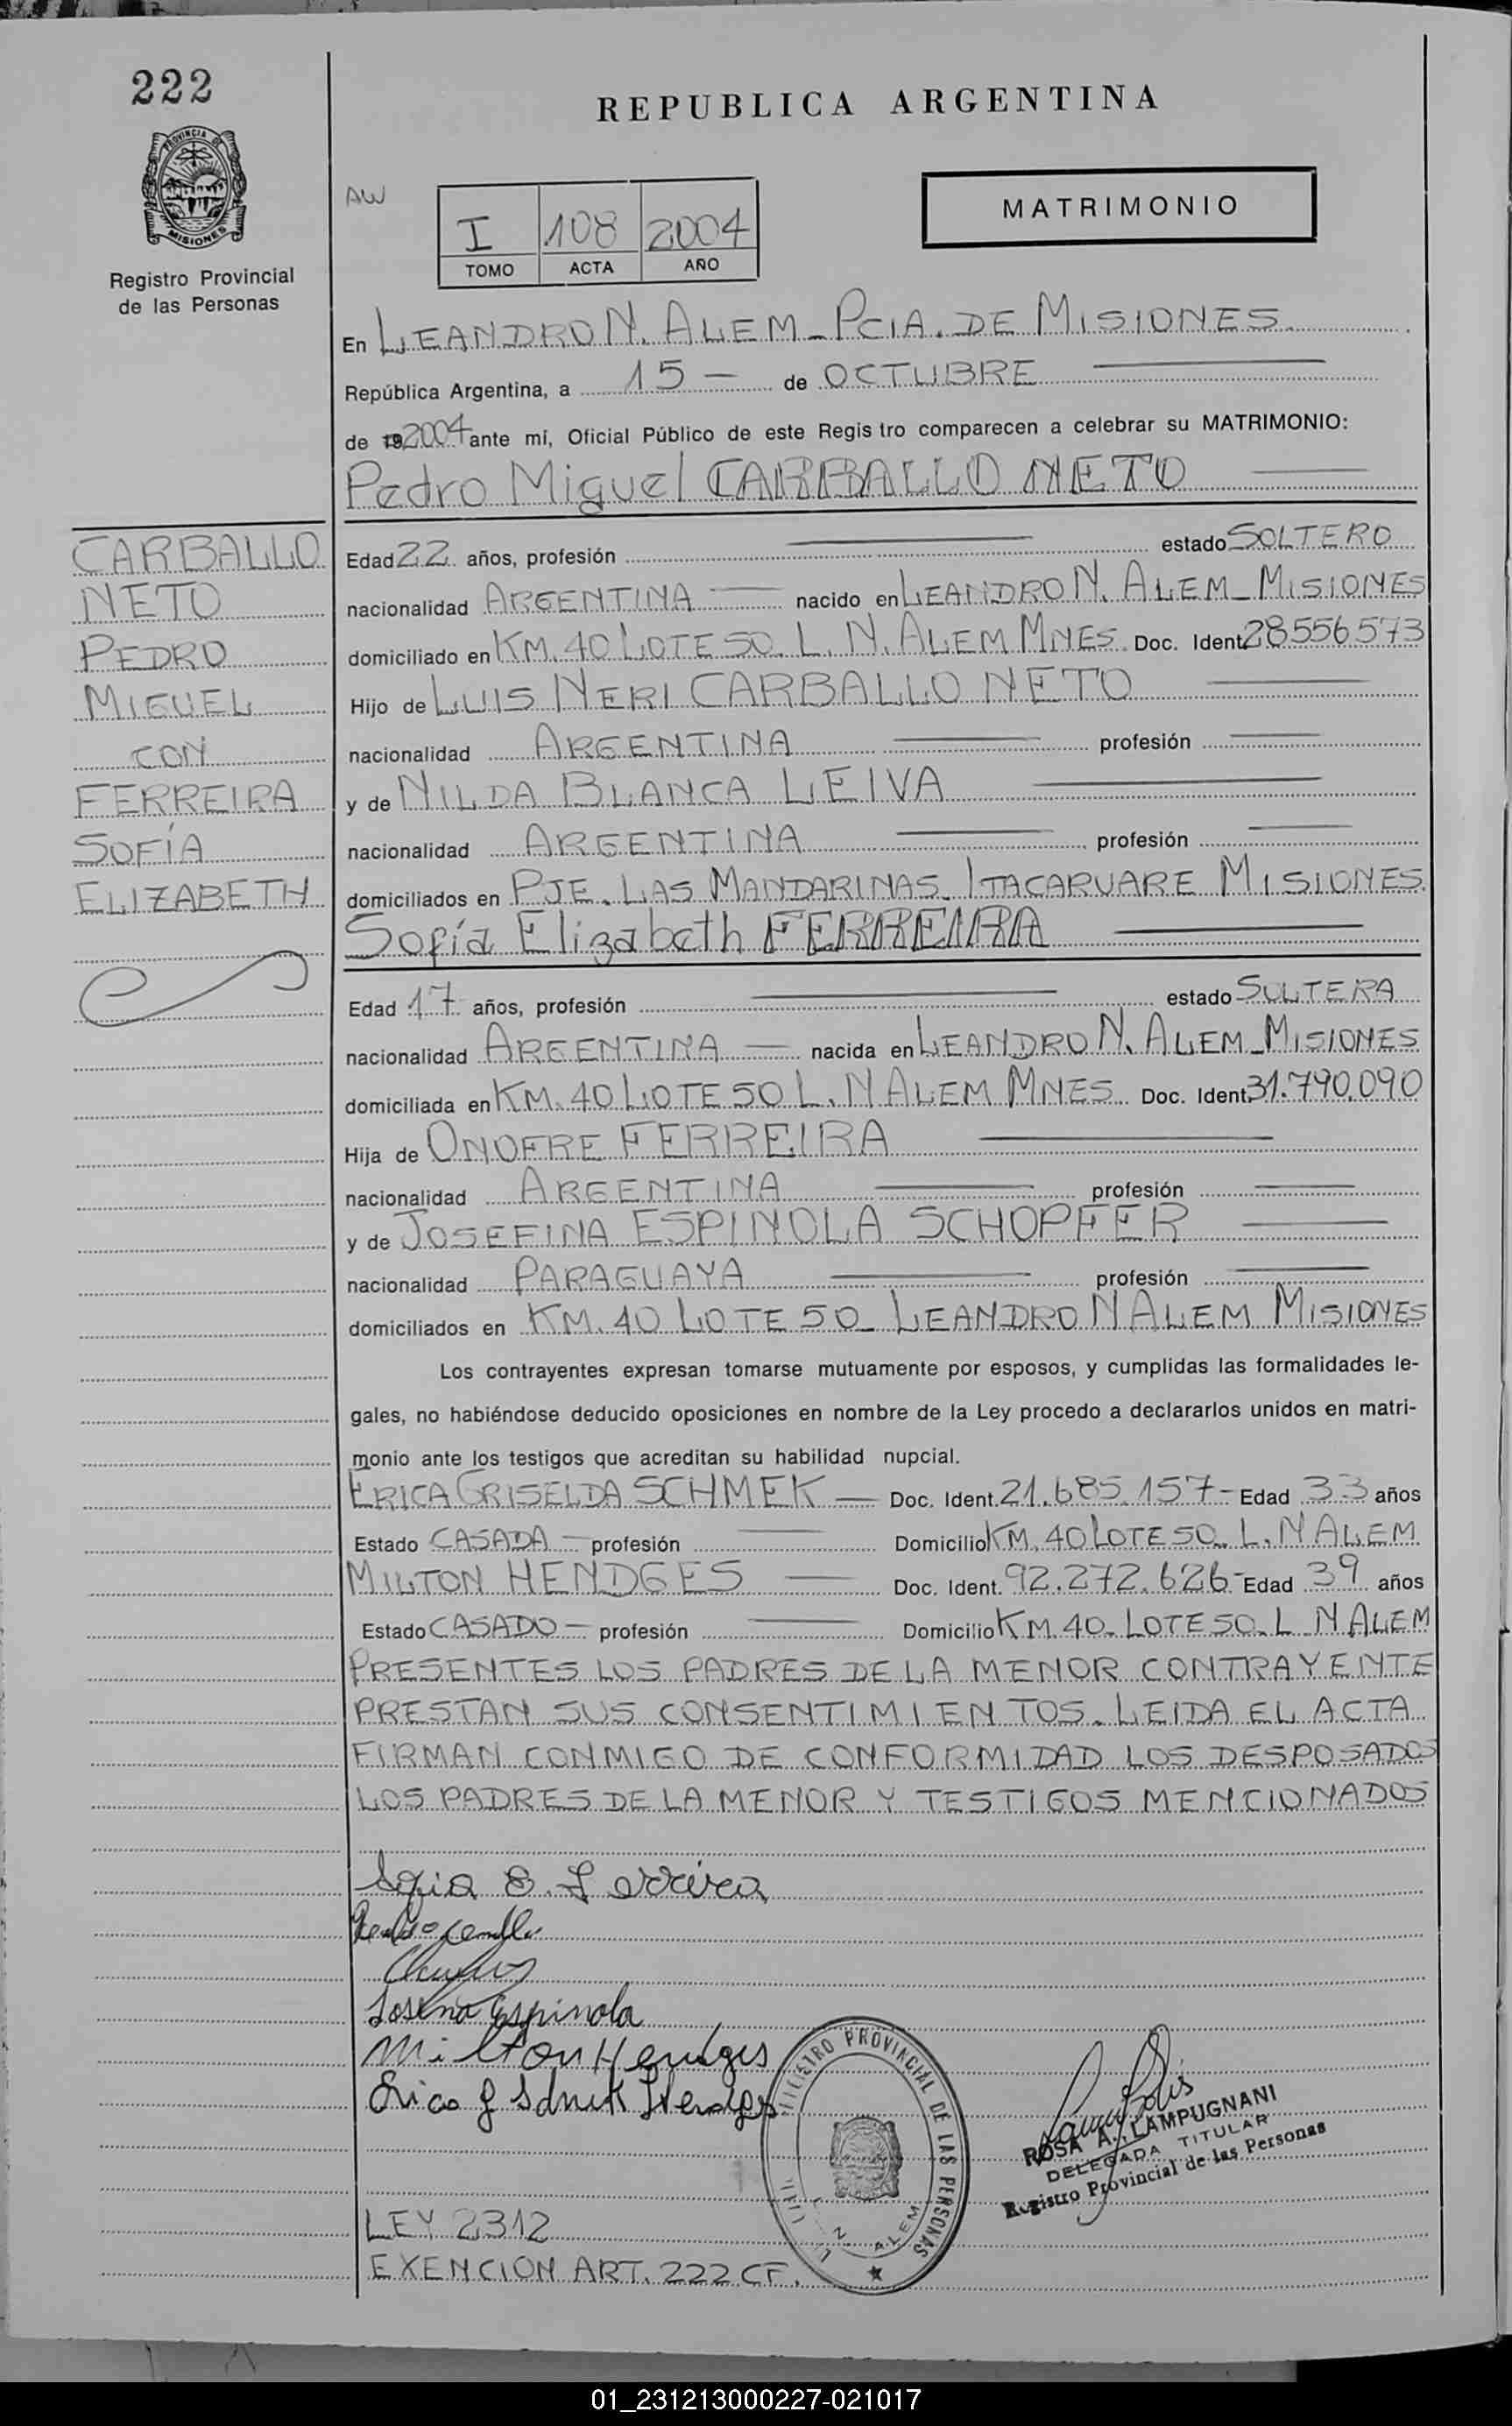 222
REPUBLICA ARGENTINA
PROVINCIA DE
MISIONES
Registro Provincial
de las Personas
AW
I 108 2004
TOMO ACTA AÑO
MATRIMONIO
En LEANDRO N. ALEM - PCIA. DE MISIONES
República Argentina, a 15 — de OCTUBRE
de 19 2004 ante mí, Oficial Público de este Registro comparecen a celebrar su MATRIMONIO:
Pedro Miguel CARBALLO NETO
CARBALLO
NETO
PEDRO
MIGUEL
CON
FERREIRA
SOFÍA
ELIZABETH
Edad 22 años, profesión — estado SOLTERO
nacionalidad ARGENTINA — nacido en LEANDRO N. ALEM - MISIONES
domiciliado en KM. 40 LOTE 50. L. N. ALEM MNES. Doc. Ident. 28.556.573
Hijo de LUIS NERI CARBALLO NETO —
nacionalidad ARGENTINA — profesión —
y de NILDA BLANCA LEIVA —
nacionalidad ARGENTINA — profesión —
domiciliados en PJE. LAS MANDARINAS. ITACARUARE MISIONES.
Sofía Elizabeth FERREIRA —
Edad 17 años, profesión — estado SOLTERA
nacionalidad ARGENTINA — nacida en LEANDRO N. ALEM - MISIONES
domiciliada en KM. 40 LOTE 50 L. N ALEM MNES. Doc. Ident. 31.790.090
Hija de ONOFRE FERREIRA —
nacionalidad ARGENTINA — profesión —
y de JOSEFINA ESPINOLA SCHOPFER —
nacionalidad PARAGUAYA — profesión —
domiciliados en KM. 40 LOTE 50 - LEANDRO N ALEM MISIONES
Los contrayentes expresan tomarse mutuamente por esposos, y cumplidas las formalidades le-
gales, no habiéndose deducido oposiciones en nombre de la Ley procedo a declararlos unidos en matri-
monio ante los testigos que acreditan su habilidad nupcial.
ERICA GRISELDA SCHMEK — Doc. Ident. 21.685.157 - Edad 33 años
Estado CASADA — profesión — Domicilio KM. 40 LOTE 50. L. N ALEM
MILTON HENDGES — Doc. Ident. 92.272.626 - Edad 39 años
Estado CASADO — profesión — Domicilio KM. 40. LOTE 50. L N ALEM
PRESENTES LOS PADRES DE LA MENOR CONTRAYENTE
PRESTAN SUS CONSENTIMIENTOS. LEIDA EL ACTA
FIRMAN CONMIGO DE CONFORMIDAD LOS DESPOSADOS
LOS PADRES DE LA MENOR Y TESTIGOS MENCIONADOS
Sofia E. Ferreira
Josefina Espinola
Milton Hendges
Erica G Schmek Hendges
REGISTRO PROVINCIAL DE LAS PERSONAS
L. N. ALEM
ROSA A. LAMPUGNANI
DELEGADA TITULAR
Registro Provincial de las Personas
LEY 2312
EXENCION ART. 222 CF.
01_231213000227-021017